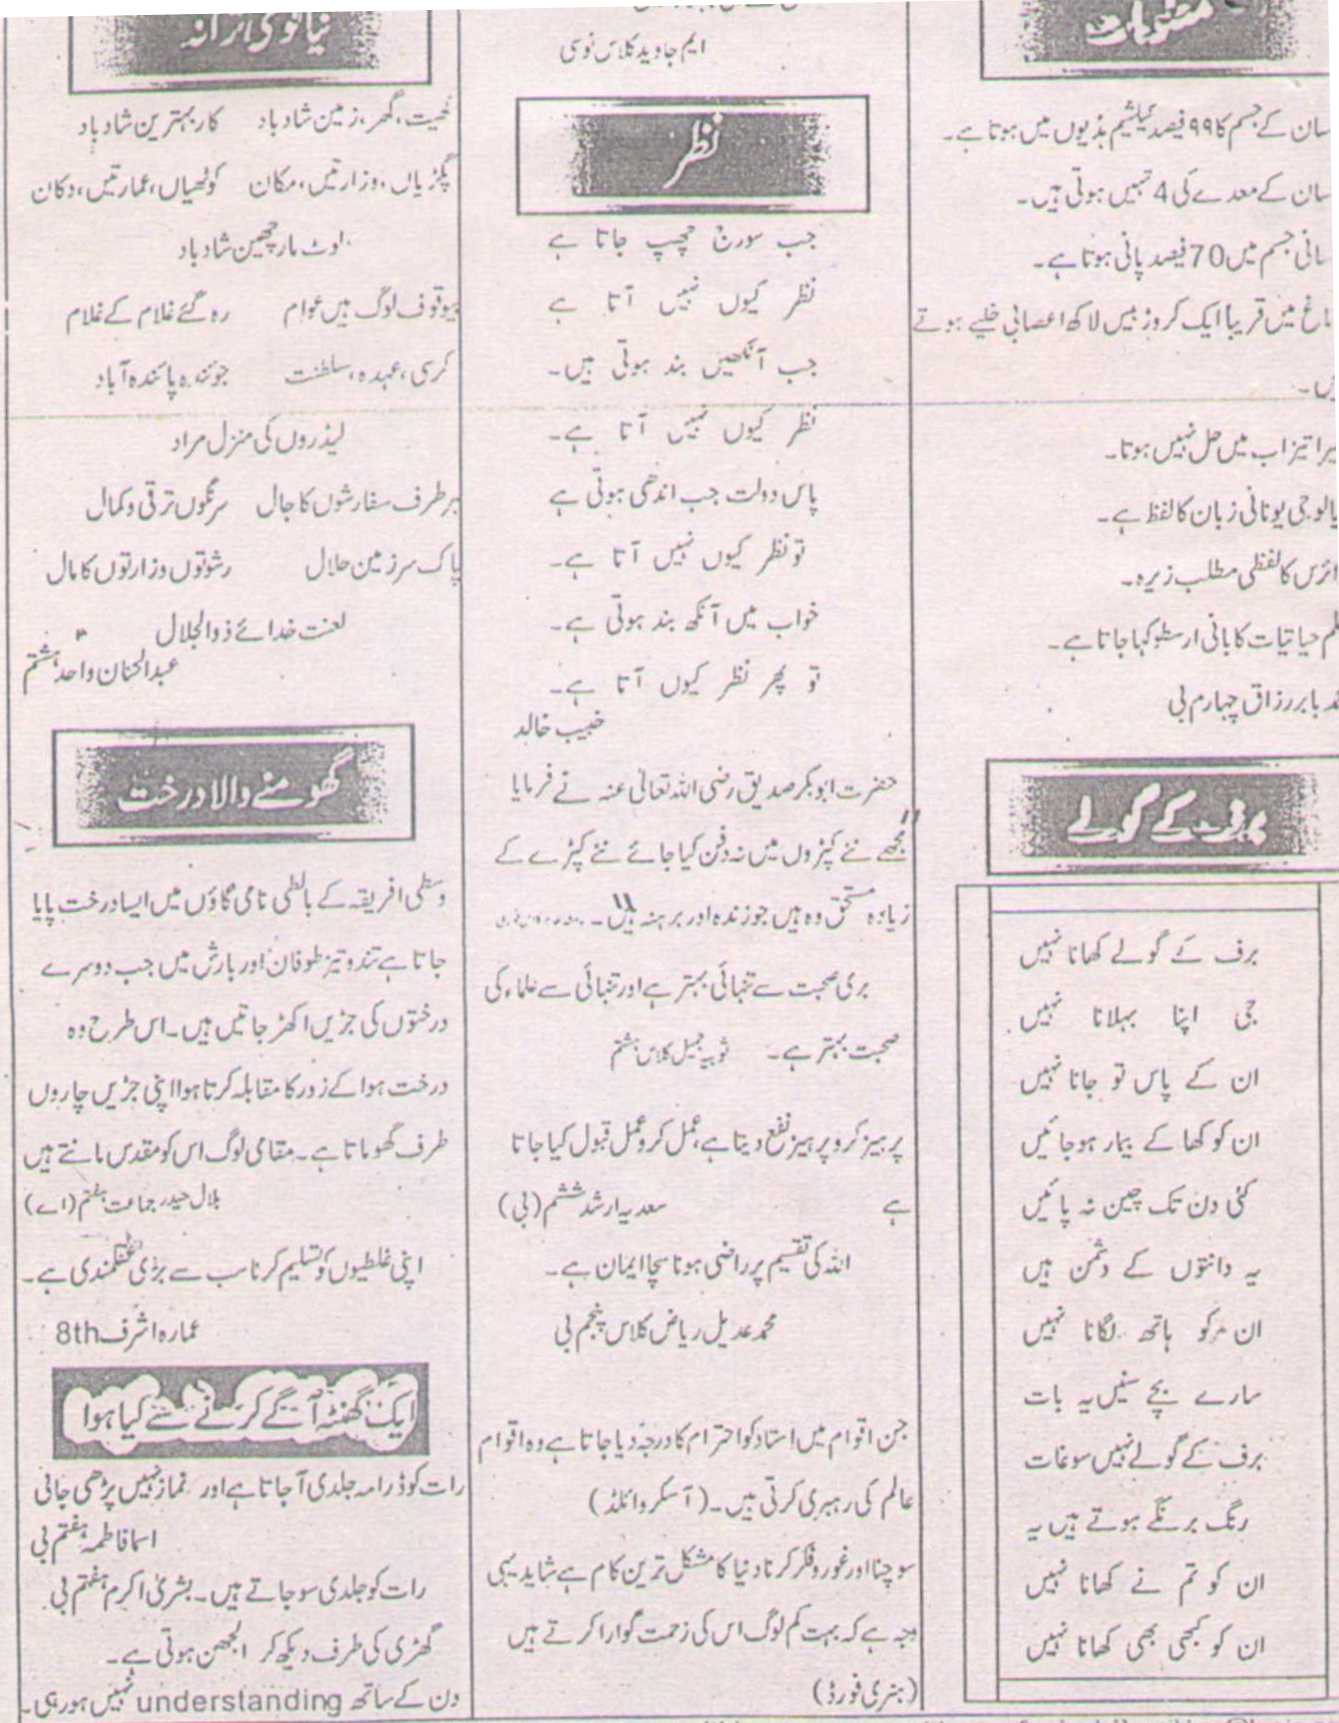 معلومات
سان کے جسم کا ۹۹ فیصد کیلشیم ہڈیوں میں ہوتا ہے۔
سان کے معدے کی 4 تہیں ہوتی ہیں۔
سانی جسم میں 70 فیصد پانی ہوتا ہے۔
ماغ میں قریبا ایک کروڑ بیس لاکھ اعصابی خلیے ہوتے
یں۔
یرا تیزاب میں حل نہیں ہوتا۔
یالوجی یونانی زبان کا لفظ ہے۔
ائرس کا لفظی مطلب زہرہ۔
لم حیاتیات کا بانی ارسطو کہا جاتا ہے۔
بابر رزاق چہارم بی
برف کے گولے
برف کے گولے کھانا نہیں
جی اپنا بہلانا نہیں
ان کے پاس تو جانا نہیں
ان کو کھا کے بیمار ہوجائیں
کئی دن تک چین نہ پائیں
یہ دانتوں کے دشمن ہیں
ان کو ہاتھ لگانا نہیں
سارے بچے سنیں یہ بات
برف کے گولے نہیں سوغات
رنگ برنگے ہوتے ہیں یہ
ان کو تم نے کھانا نہیں
ان کو کبھی بھی کھانا نہیں
ایم جاوید کلاس نوسی
نظر
جب سورج چھپ جاتا ہے
نظر کیوں نہیں آتا ہے
جب آنکھیں بند ہوتی ہیں۔
نظر کیوں نہیں آتا ہے۔
پاس دولت جب اندھی ہوتی ہے
تو نظر کیوں نہیں آتا ہے۔
خواب میں آنکھ بند ہوتی ہے۔
تو پھر نظر کیوں آتا ہے۔
خبیب خالد
حضرت ابوبکر صدیق رضی اللہ تعالیٰ عنہ نے فرمایا
"مجھے نئے کپڑوں میں نہ دفن کیا جائے نئے کپڑے کے
زیادہ مستحق وہ ہیں جو زندہ اور برہنہ ہیں"۔
بری صحبت سے تنہائی بہتر ہے اور تنہائی سے علماء کی
صحبت بہتر ہے۔ ثوبیہ جمیل کلاس ہشتم
پرہیز کرو پرہیز نفع دیتا ہے، عمل کرو عمل قبول کیا جاتا
ہے سعدیہ ارشد ششم (بی)
اللہ کی تقسیم پر راضی ہونا سچا ایمان ہے۔
محمد عدیل ریاض کلاس پنجم بی
جن اقوام میں استاد کو احترام کا درجہ دیا جاتا ہے وہ اقوام
عالم کی رہبری کرتی ہیں۔ (آسکر وائلڈ)
سوچنا اور غور و فکر کرنا دنیا کا مشکل ترین کام ہے شاید یہی
وجہ ہے کہ بہت کم لوگ اس کی زحمت گوارا کرتے ہیں
(ہنری فورڈ)
نیا قومی ترانہ
کھیت، گھر، زمین شاد باد کار بہترین شاد باد
پگڑیاں، وزارتیں، مکان کوٹھیاں، عمارتیں، دکان
لوٹ مار چھین شاد باد
بیوقوف لوگ ہیں عوام رہ گئے غلام کے غلام
کرسی، عہدہ، سلطنت جوئندہ پائندہ آباد
لیڈروں کی منزل مراد
ہر طرف سفارشوں کا جال سرنگوں ترقی و کمال
پاک سرزمین حلال رشوتوں وزارتوں کا مال
لعنت خدائے ذوالجلال
عبدالحنان واحد ہشتم
گھومنے والا درخت
وسطی افریقہ کے بالطی نامی گاؤں میں ایسا درخت پایا
جاتا ہے تند و تیز طوفان اور بارش میں جب دوسرے
درختوں کی جڑیں اکھڑ جاتیں ہیں۔ اس طرح وہ
درخت ہوا کے زور کا مقابلہ کرتا ہوا اپنی جڑیں چاروں
طرف گھوماتا ہے۔ مقامی لوگ اس کو مقدس مانتے ہیں
بلال حیدر جماعت ہفتم (اے)
اپنی غلطیوں کو تسلیم کرنا سب سے بڑی عقلمندی ہے۔
عمارہ اشرف 8th
ایک گھنٹہ آگے کرنے سے کیا ہوا
رات کو ڈرامہ جلدی آجاتا ہے اور نماز نہیں پڑھی جاتی
اسما فاطمہ ہفتم بی
رات کو جلدی سو جاتے ہیں۔ بشریٰ اکرم ہفتم بی
گھڑی کی طرف دیکھ کر الجھن ہوتی ہے۔
دن کے ساتھ understanding نہیں ہورہی۔